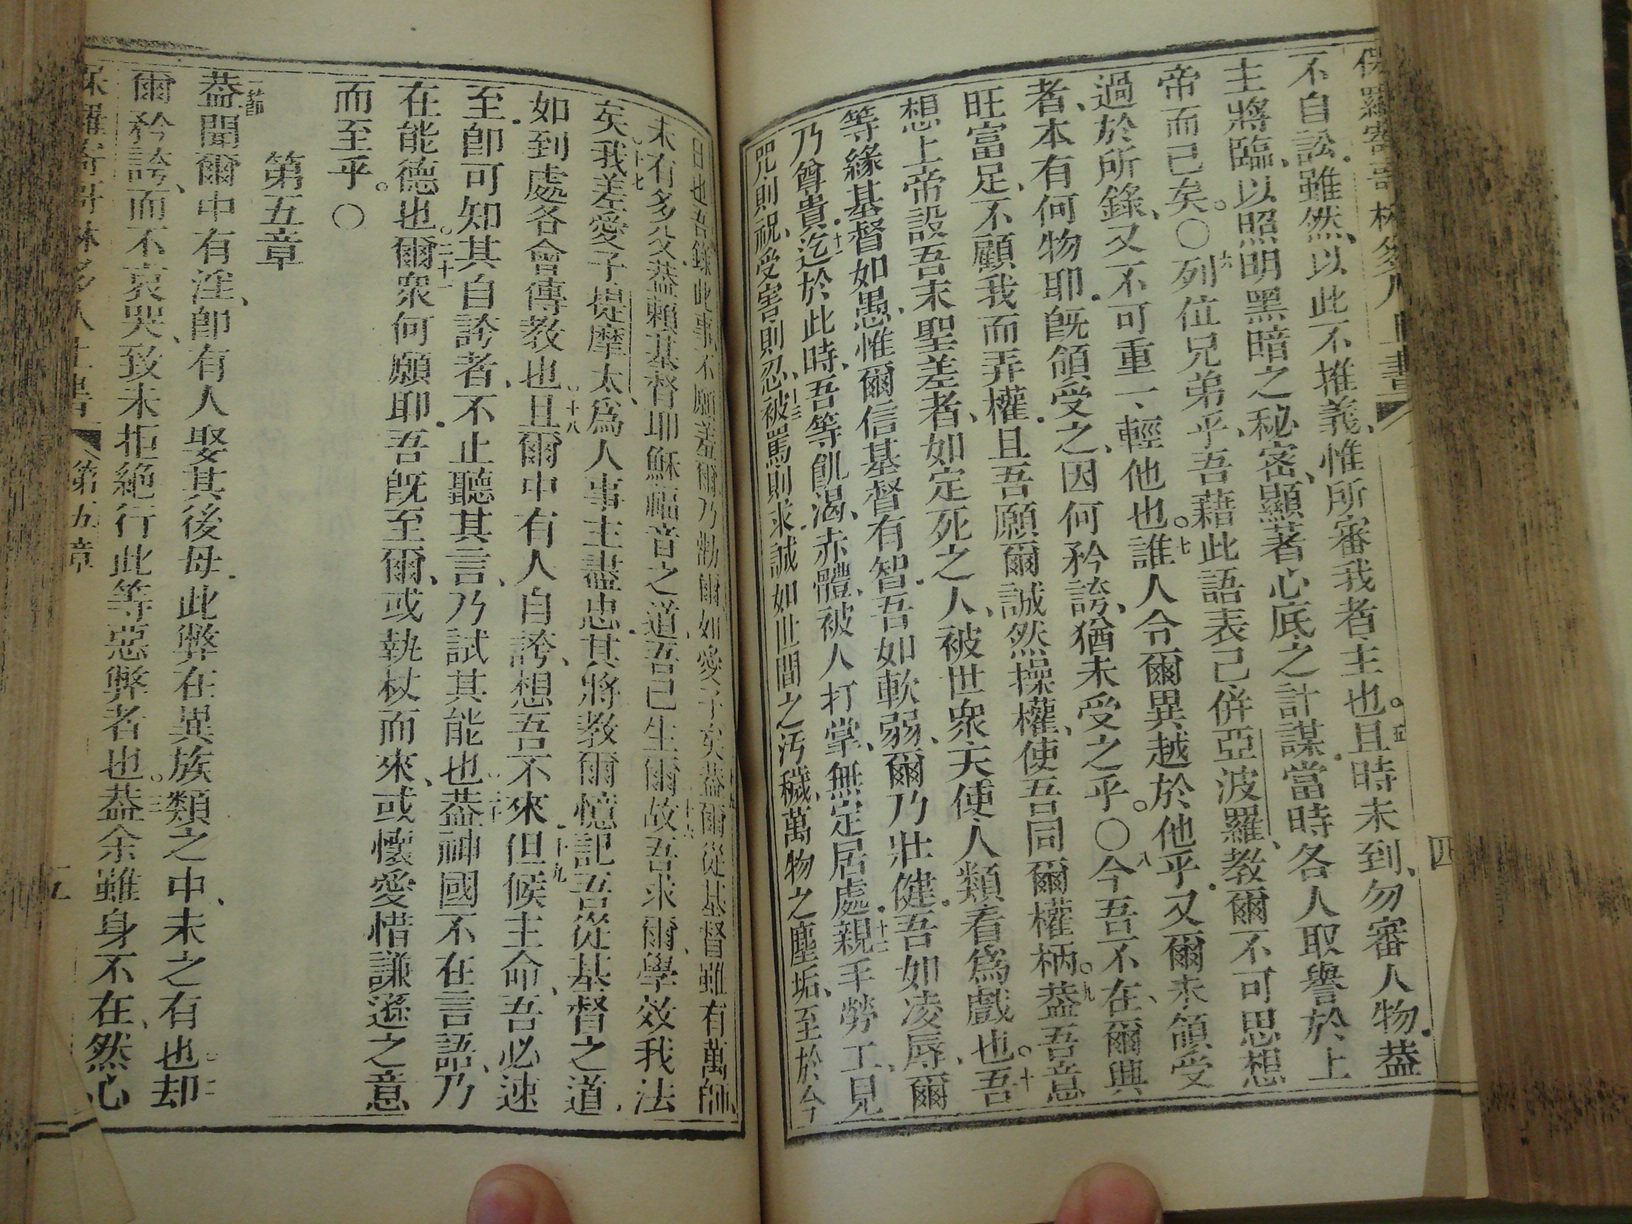 保羅寄哥林多人上書
四
不自訟、雖然、以此不推義、惟所審我者主也。五且時未到、勿審人物、蓋
主將臨、以照明黑暗之秘密、顯著心底之計謀、當時各人取譽於上
帝而已矣。〇六列位兄弟乎、吾藉此語表己併亞波羅、教爾不可思想
過於所錄、又不可重一、輕他也。七誰人令爾異越於他乎、又爾未領受
者、本有何物耶、既領受之、因何矜誇、猶未受之乎。〇八今吾不在、爾興
旺富足、不顧我而弄權、且吾願爾誠然操權、使吾同爾權柄。九蓋吾意
想上帝設吾末聖差者、如定死之人、被世衆天使人類看為戲也。十吾
等緣基督如愚、惟爾信基督有智、吾如軟弱、爾乃壯健、吾如凌辱、爾
乃尊貴、十一迄於此時、吾等飢渴、赤體、被人打掌、無定居處、十二親手勞工、見
咒則祝、受害則忍、十三被罵則求、誠如世間之汚穢、萬物之塵垢、至於今
日也、吾錄此事、不願羞爾、乃勸爾如愛子矣、蓋爾從基督雖有萬師、
未有多父、蓋賴基督耶穌福音之道、吾已生爾、十六故吾求爾、學效我法
矣、十七我差愛子提摩太、為人事主盡忠、其將教爾憶記吾從基督之道、
如到處各會傳教也、十八且爾中有人自誇、想吾不來、十九但候主命、吾必速
至、即可知其自誇者、不止聽其言、乃試其能也、二十蓋神國不在言語、乃
在能德也。二十一爾衆何願耶、吾既至爾、或執杖而來、或懷愛惜謙遜之意
而至乎。〇
第五章
一節蓋聞爾中有淫、即有人娶其後母、此弊在異族類之中、未之有也、二却
爾矜誇、而不哀哭、致未拒絕行此等惡弊者也。三蓋余雖身不在、然心
第五章
五